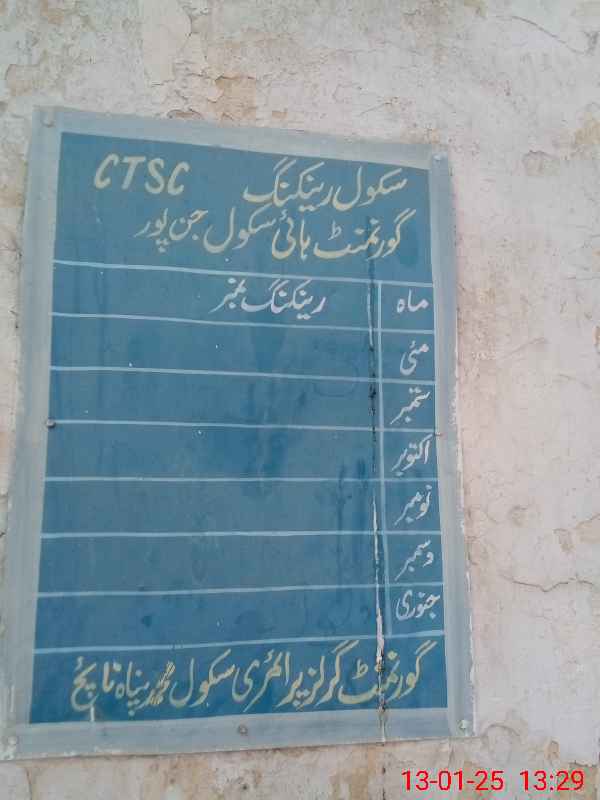 سکول رینکنگ CTSC
گورنمنٹ ہائی سکول جن پور
ماہ رینکنگ نمبر
مئی
ستمبر
اکتوبر
نومبر
دسمبر
جنوری
گورنمنٹ گرلز پرائمری سکول محمد پناہ نائچ
13-01-25 13:29